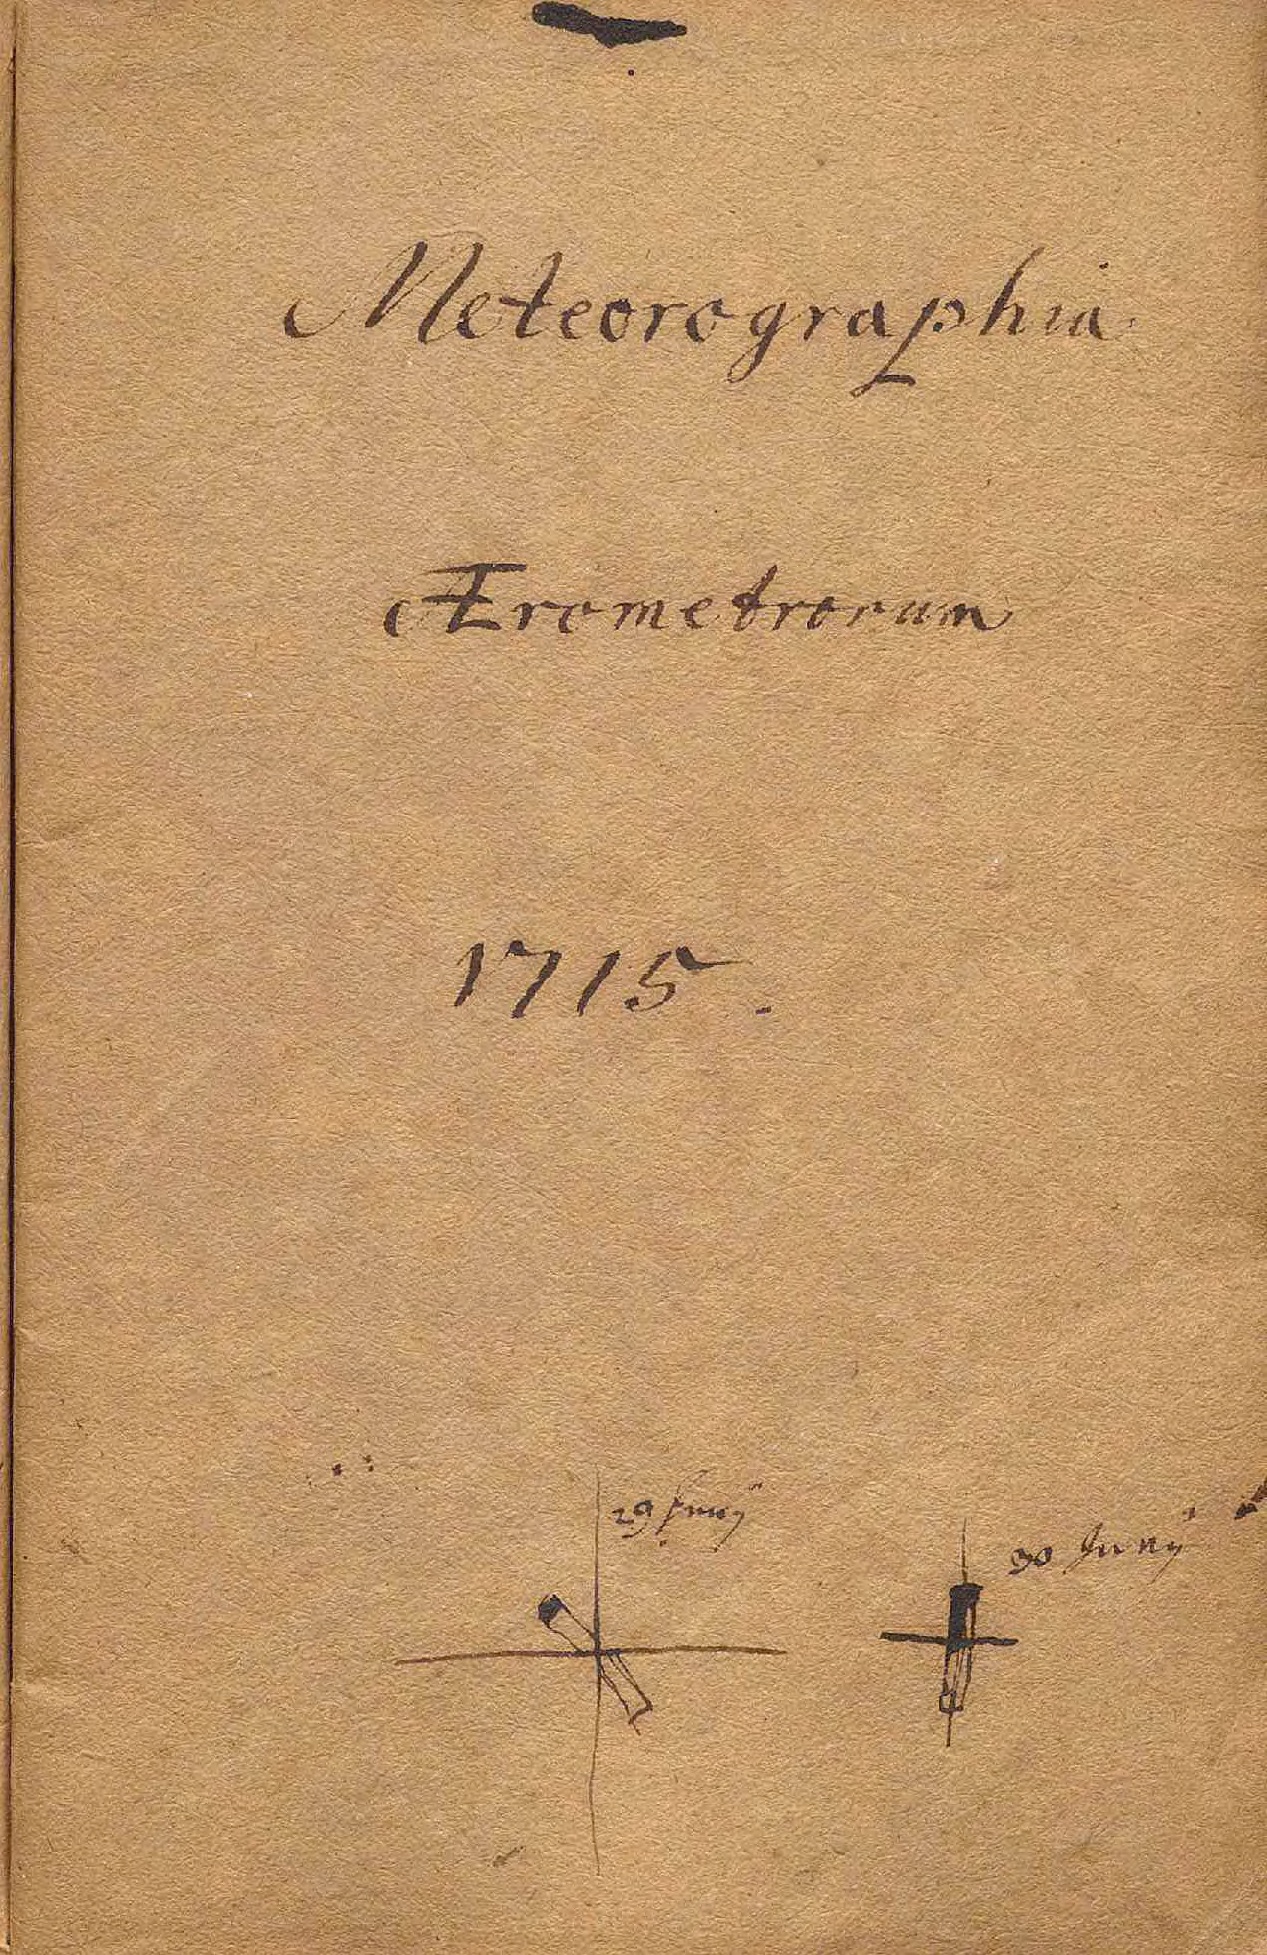 Meteorographia
Ærometrorum
1715.
29 Junij
30 Junij